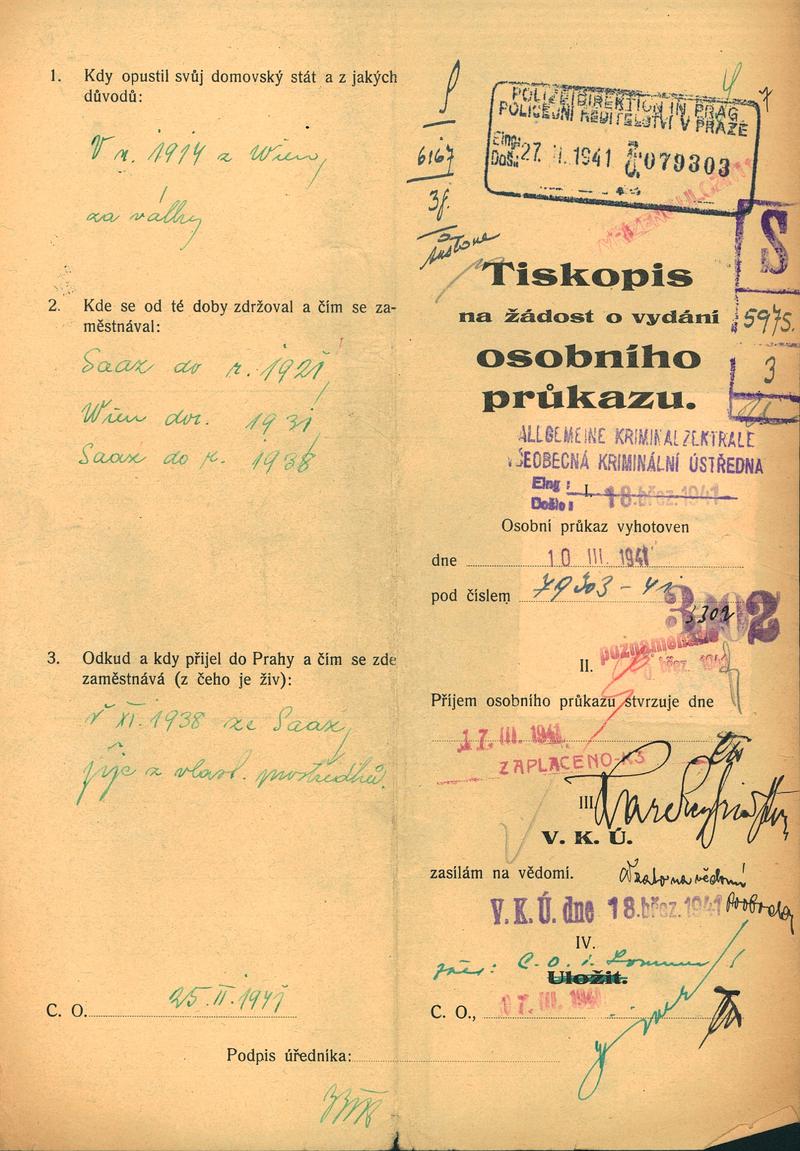 1. Kdy opustil svůj domovský stát a z jakých
důvodů:
V r. 1914 z Wien,
za války
2. Kde se od té doby zdržoval a čím se za-
městnával:
Saaz do r. 1921,
Wien do r. 1931,
Saaz do r. 1938
3. Odkud a kdy přijel do Prahy a čím se zde
zaměstnává (z čeho je živ):
v XI. 1938 ze Saaz,
žije z vlast. prostředků.
C. O. 25. II. 1941
Podpis úředníka:
6167
POLIZEIDIREKTION IN PRAG
POLICEJNÍ ŘEDITELSTVÍ V PRAZE
Eing.:
Doš.: 27. II. 1941 079303
S
5975.
3
Tiskopis
na žádost o vydání
osobního
průkazu.
ALLGEMEINE KRIMINALZENTRALE
VŠEOBECNÁ KRIMINÁLNÍ ÚSTŘEDNA
Eing:
Došlo: 18. břez. 1941
I.
Osobní průkaz vyhotoven
dne 10 III. 1941
pod číslem 79303-41
3302
3302
poznamenáno
břez. 1941
II.
Příjem osobního průkazu stvrzuje dne
17. III. 1941
ZAPLACENO-K5
III.
V. K. Ú.
zasílám na vědomí.
Vzato na vědomí
V.K.Ú. dne 18. břez. 1941
IV.
Uložit.
C. O., 17. III. 1941